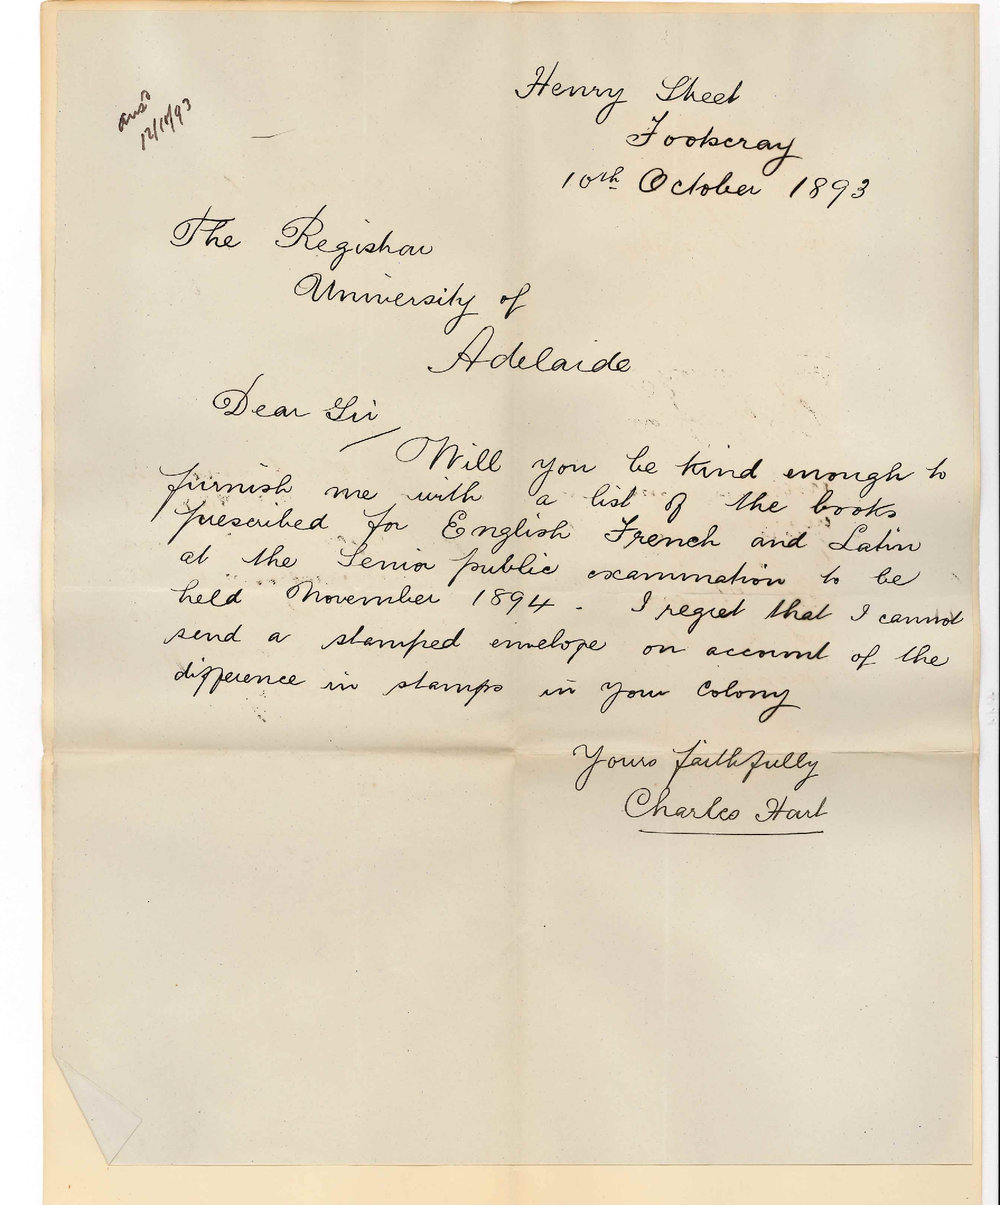 ansd
12/10/93
Henry Street
Footscray
10th October 1893
The Registrar
University of
Adelaide
Dear Sir
Will you be kind enough to
furnish me with a list of the books
prescribed for English French and Latin
at the Senior public examination to be
held November 1894. I regret that I cannot
send a stamped envelope on account of the
difference in stamps in your Colony
Yours faithfully
Charles Hart